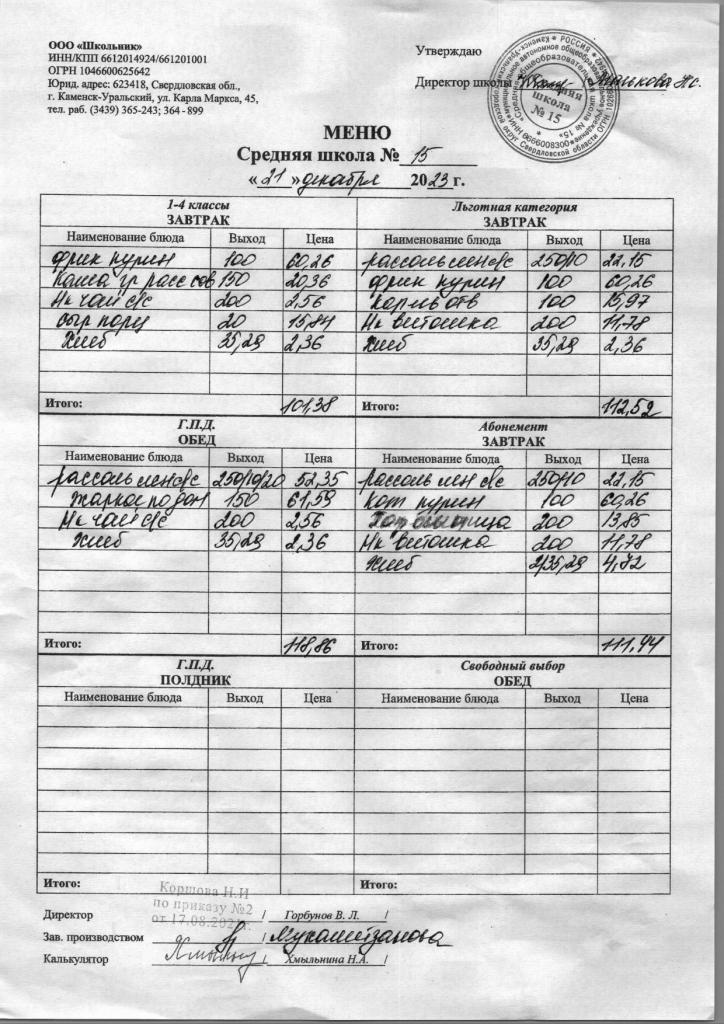 ООО «Школьник»
ИНН/КПП 6612014924/661201001
ОГРН 1046600625642
Юрид. адрес: 623418, Свердловская обл.,
г. Каменск-Уральский, ул. Карла Маркса, 45,
тел. раб. (3439) 365-243; 364 - 899
Утверждаю
Директор школы
школа
№ 15
МЕНЮ
Средняя школа № 15
« 21 » декабря 2023 г.
1-4 классы
ЗАВТРАК
Наименование блюда Выход Цена
фрик курин 100 60,26
Каша гр расс 150 20,36
Нк чай с/с 200 2,56
сыр порц 20 15,84
Хлеб 35,29 2,36
Итого: 101,38
Льготная категория
ЗАВТРАК
Наименование блюда Выход Цена
рассольлен с/с 250/10 22,15
фрик курин 100 60,26
Карт отв 100 15,97
Нк витошка 200 11,78
Хлеб 35,29 2,36
Итого: 112,52
Г.П.Д.
ОБЕД
Наименование блюда Выход Цена
рассольлен с/с 250/10/20 52,35
Жаркое по дом 150 61,59
Нк чай с/с 200 2,56
Хлеб 35,29 2,36
Итого: 118,86
Абонемент
ЗАВТРАК
Наименование блюда Выход Цена
рассольлен с/с 250/10 22,15
Кот курин 100 60,26
200 13,85
Нк витошка 200 11,78
Хлеб 2/35,29 4,72
Итого: 111,44
Г.П.Д.
ПОЛДНИК
Наименование блюда Выход Цена
Итого:
Свободный выбор
ОБЕД
Наименование блюда Выход Цена
Итого:
Коршова Н.И
по приказу №2
от 17.08.202
Директор / Горбунов В. Л. /
Зав. производством / Мухаметзанова
Калькулятор / Хмыльнина Н.А. /